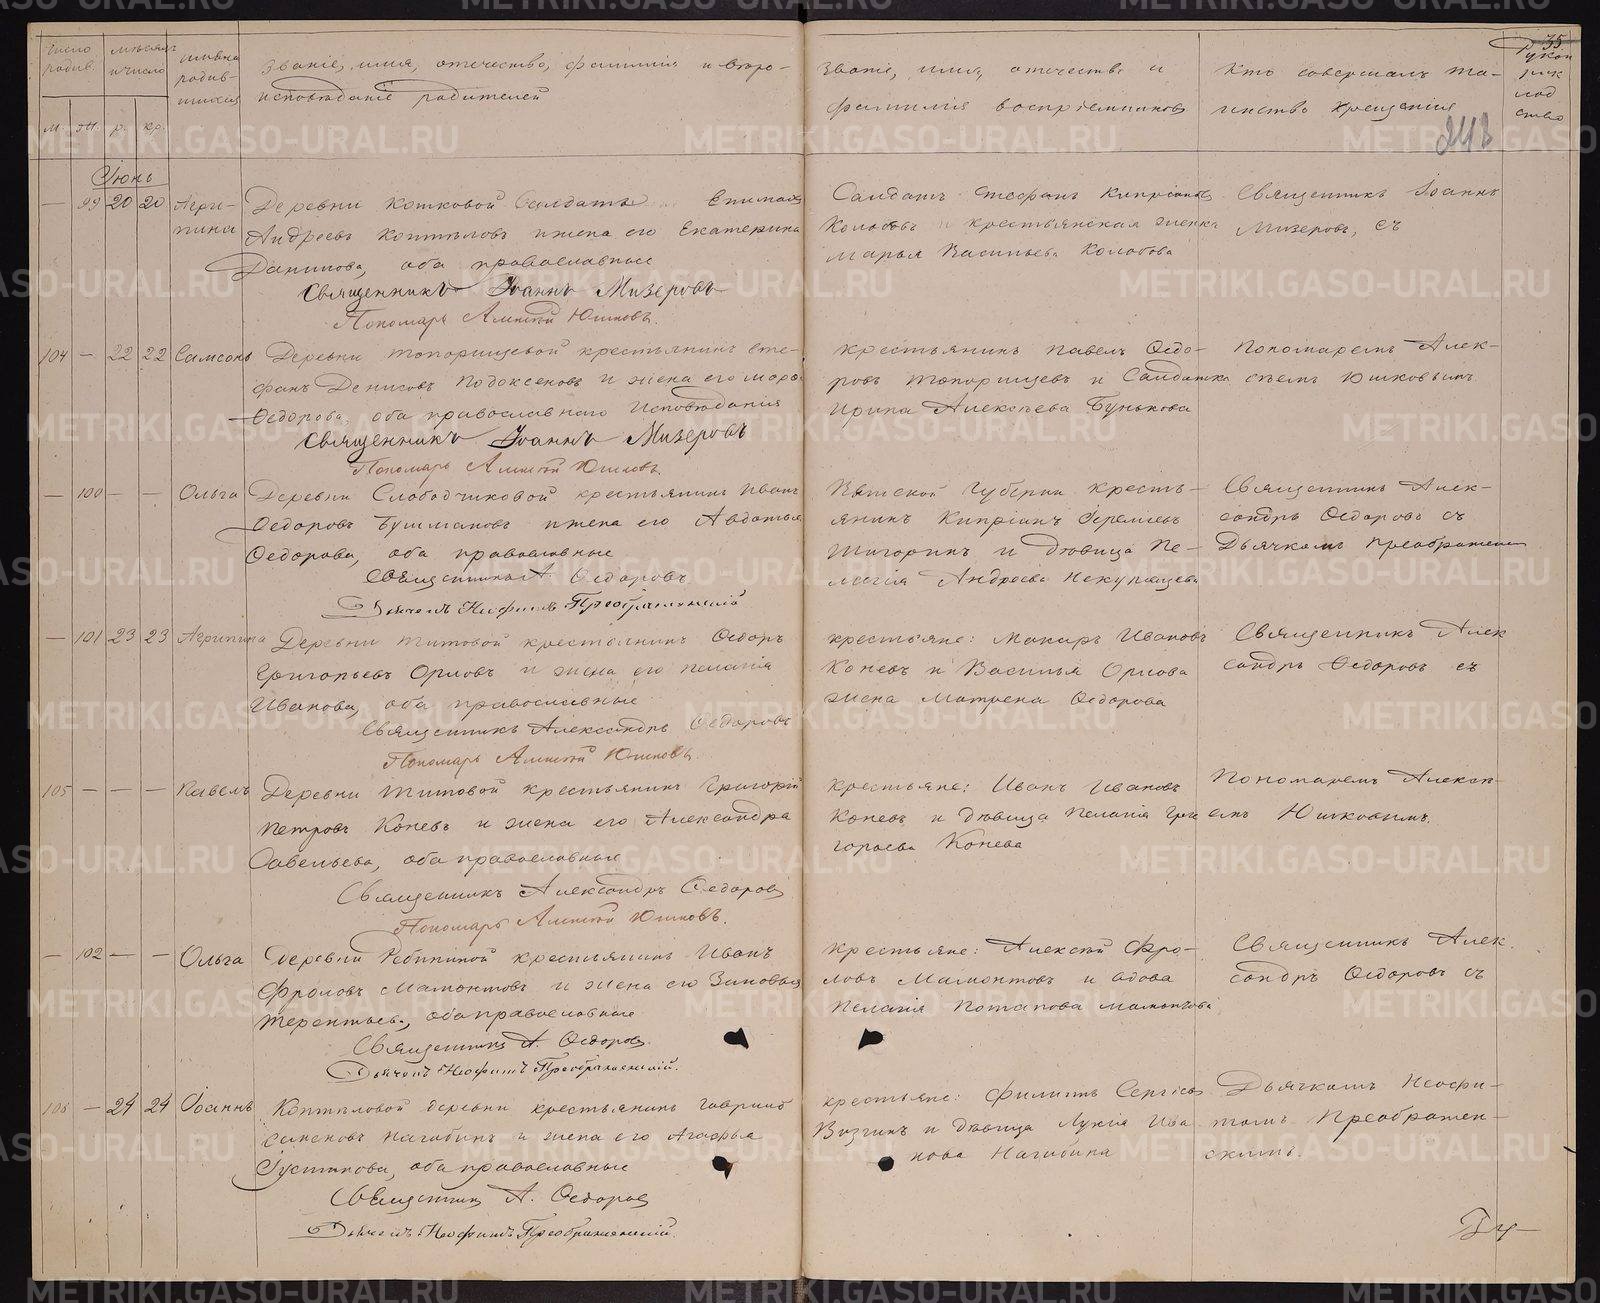 Число родив.
мѣсяцъ и число
имена родив-
шихся
Званіе, имя, отечество, фамилія и вѣро-
исповѣданіе родителей
Званіе, имя, отечество и
фамилія воспріемниковъ
Кто совершалъ та-
инство крещенія
Рукоп
рик
лод
ство
35
м. ж. р. кр.
Іюнь
— 99 20 20 Агри-
пина
Деревни Кошковой Солдатъ
Андреевъ Коптѣловъ и жена его Екатерина
Данилова, оба православные
Священникъ Іоаннъ Мизеровъ
Пономарь Алексѣй Юшковъ.
Солдатъ Стефанъ Кипріановъ
Колобовъ и крестьянская женка
Марья Васильева Колобова
Священникъ Іоаннъ
Мизеровъ, съ
104 — 22 22 Самсонъ
Деревни Топорищевой крестьянинъ Сте-
фанъ Денисовъ Подоксеновъ и жена его
Ѳедорова, оба православнаго Исповѣданія
Священникъ Іоаннъ Мизеровъ
Пономарь Алексѣй Юшковъ
Крестьянинъ Павелъ Ѳедо-
ровъ Топорищевъ и Солдатка
Ирина Алексѣева Бунькова
Пономаремъ Алек-
сѣемъ Юшковымъ
— 100 — — Ольга
Деревни Слободчиковой крестьянинъ Иванъ
Ѳедоровъ Бушмановъ и жена его Авдотья
Ѳедорова, оба православные
Священникъ А. Ѳедоровъ
Дьячекъ Неофитъ Преображенскій
Вятской Губерніи кресть-
янинъ Кипріанъ
и дѣвица Пе-
лагія Андреева
Священникъ Алек-
сандръ Ѳедоровъ съ
Дьячкомъ Преображенск
— 101 23 23 Агрипина
Деревни Титовой крестьянинъ Ѳедоръ
Григорьевъ Орловъ и жена его Пелагія
Иванова, оба православные
Священникъ Александръ Ѳедоровъ
Пономарь Алексѣй Юшковъ.
Крестьяне: Макаръ Ивановъ
Коневъ и Василья Орлова
жена Матрена Ѳедорова
Священникъ Алек
сандръ Ѳедоровъ съ
105 — — — Павелъ
Деревни Титовой крестьянинъ Григорій
Петровъ Коневъ и жена его Александра
Савельева, оба православные
Священникъ Александръ Ѳедоровъ
Пономарь Алексѣй Юшковъ.
Крестьяне: Иванъ Ивановъ
Коневъ и дѣвица Пелагія Гри
горьева Конева
Пономаремъ Алексѣ-
емъ Юшковымъ.
— 102 — — Ольга
Деревни Рѣпиной крестьянинъ Иванъ
Фроловъ Мамонтовъ и жена его Зиновья
Терентьева, оба православные
Священникъ А. Ѳедоровъ.
Дьячекъ Неофитъ Преображенскій.
Крестьяне: Алексѣй Фро-
ловъ Мамонтовъ и вдова
Пелагія Потапова Мамонтова
Священникъ Алек.
сандръ Ѳедоровъ съ
106 — 24 24 Іоаннъ
Коптѣловой деревни крестьянинъ Гавріилъ
Нагибинъ и жена его Агафья
Іустинова, оба православные
Священникъ А. Ѳедоровъ
Дьячекъ Неофитъ Преображенскій.
Крестьяне: Филиппъ Сергѣевъ
Визгинъ и дѣвица Лукія Ива
нова Нагибина
Дьячкомъ Неофи-
томъ Преображен-
скимъ.
METRIKI.GASO-URAL.RU